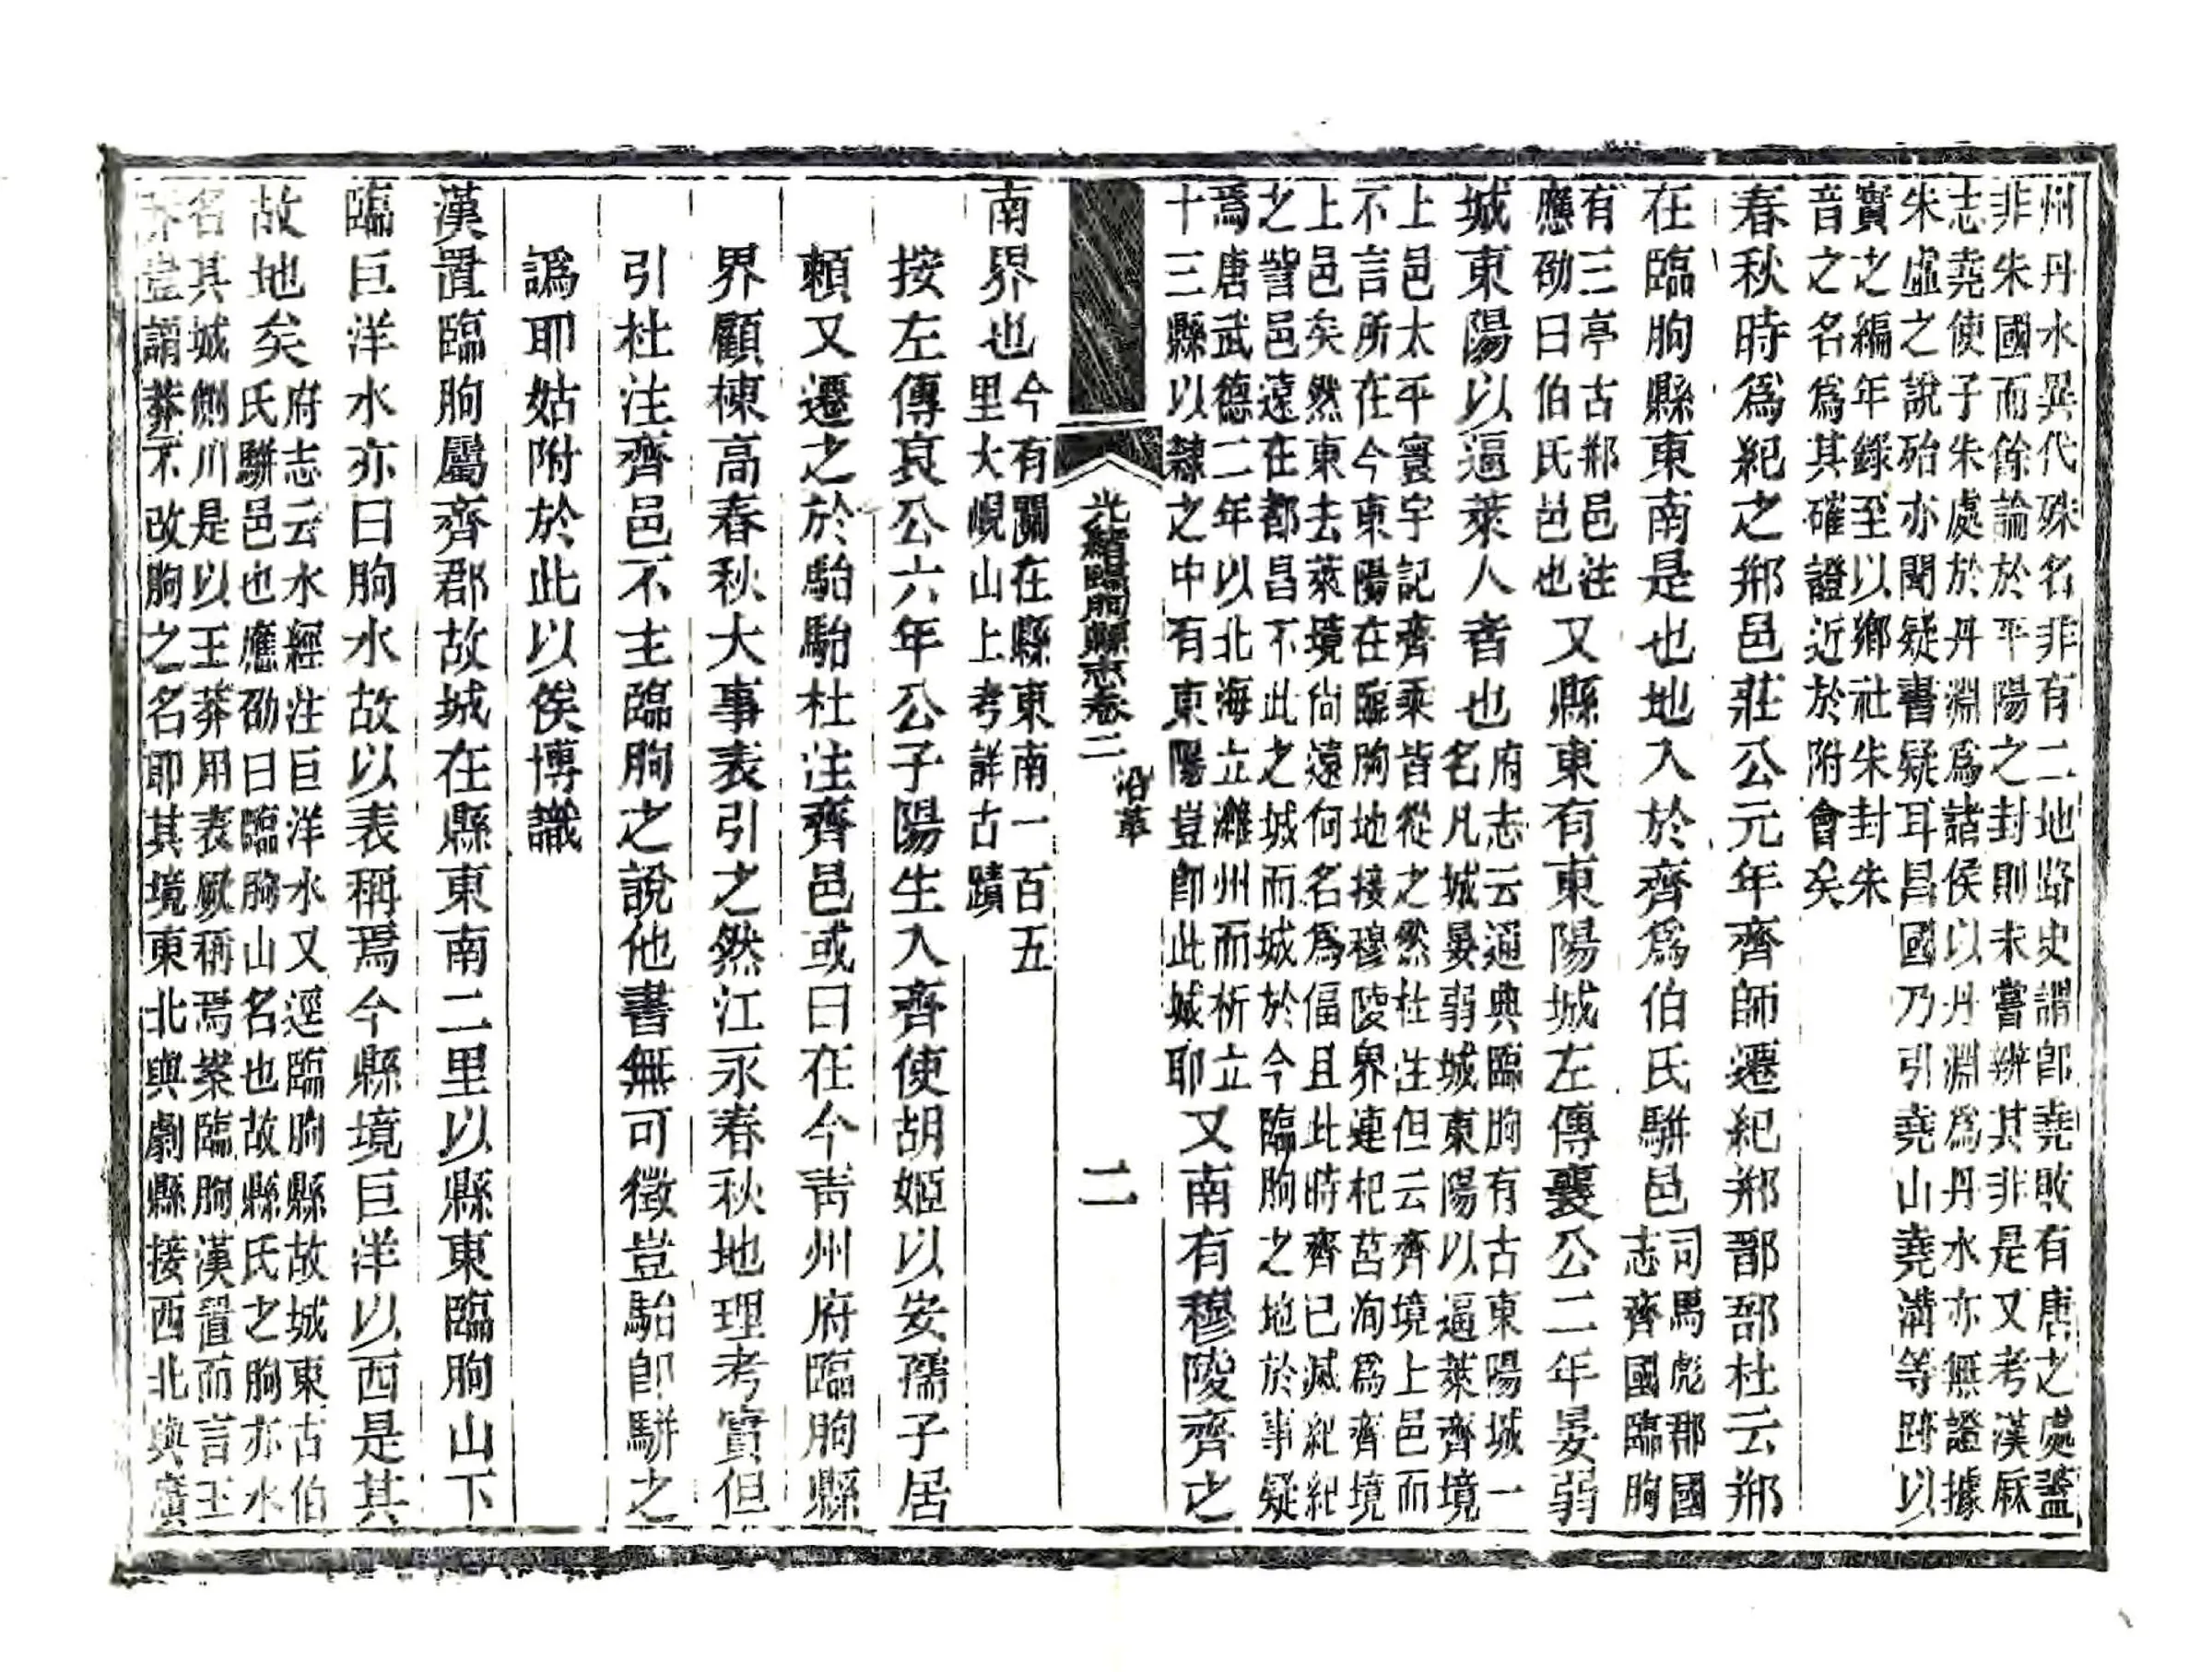 州丹水異代殊名非有二地路史謂卽堯敗有唐之處蓋
非朱國而餘論於平陽之封則未嘗辨其非是又考漢厤
志堯使子朱處於丹淵爲諸侯以丹淵爲丹水亦無證據
朱虛之說殆亦聞疑書疑耳昌國乃引堯山堯溝等跡以
實之編年錄至以鄉社朱封朱
音之名爲其確證近於附會矣
春秋時爲紀之郱邑莊公元年齊師遷紀郱鄑郚杜云郱
在臨朐縣東南是也地入於齊爲伯氏駢邑
司馬彪郡國
志齊國臨朐
有三亭古郱邑注
應劭曰伯氏邑也
又縣東有東陽城左傳襄公二年晏弱
城東陽以逼萊人者也
府志云通典臨朐有古東陽城一
名凡城晏弱城東陽以逼萊齊境
上邑太平寰宇記齊乘皆從之然杜注但云齊境上邑而
不言所在今東陽在臨朐地接穆陵界連杞莒洵爲齊境
上邑矣然東去萊境尙遠何名爲偪且此時齊已滅紀紀
之訾邑遠在都昌不此之城而城於今臨朐之地於事疑
爲唐武德二年以北海立濰州而析立
十三縣以隸之中有東陽豈卽此城耶
又南有穆陵齊之
光緒臨朐縣志卷二
沿革
二
南界也
今有關在縣東南一百五
里大峴山上考詳古蹟
按左傳哀公六年公子陽生入齊使胡姬以安孺子居
賴又遷之於駘駘杜注齊邑或曰在今靑州府臨朐縣
界顧棟高春秋大事表引之然江永春秋地理考實但
引杜注齊邑不主臨朐之說他書無可徵豈駘卽駢之
譌耶姑附於此以俟博識
漢置臨朐屬齊郡故城在縣東南二里以縣東臨朐山下
臨巨洋水亦曰朐水故以表稱焉今縣境巨洋以西是其
故地矣
府志云水經注巨洋水又逕臨朐縣故城東古伯
氏駢邑也應劭曰臨朐山名也故縣氏之朐亦水
名其城側川是以王莽用表厥稱焉案臨朐漢置而言王
莽豈謂莽不改朐之名耶其境東北與劇縣接西北與廣